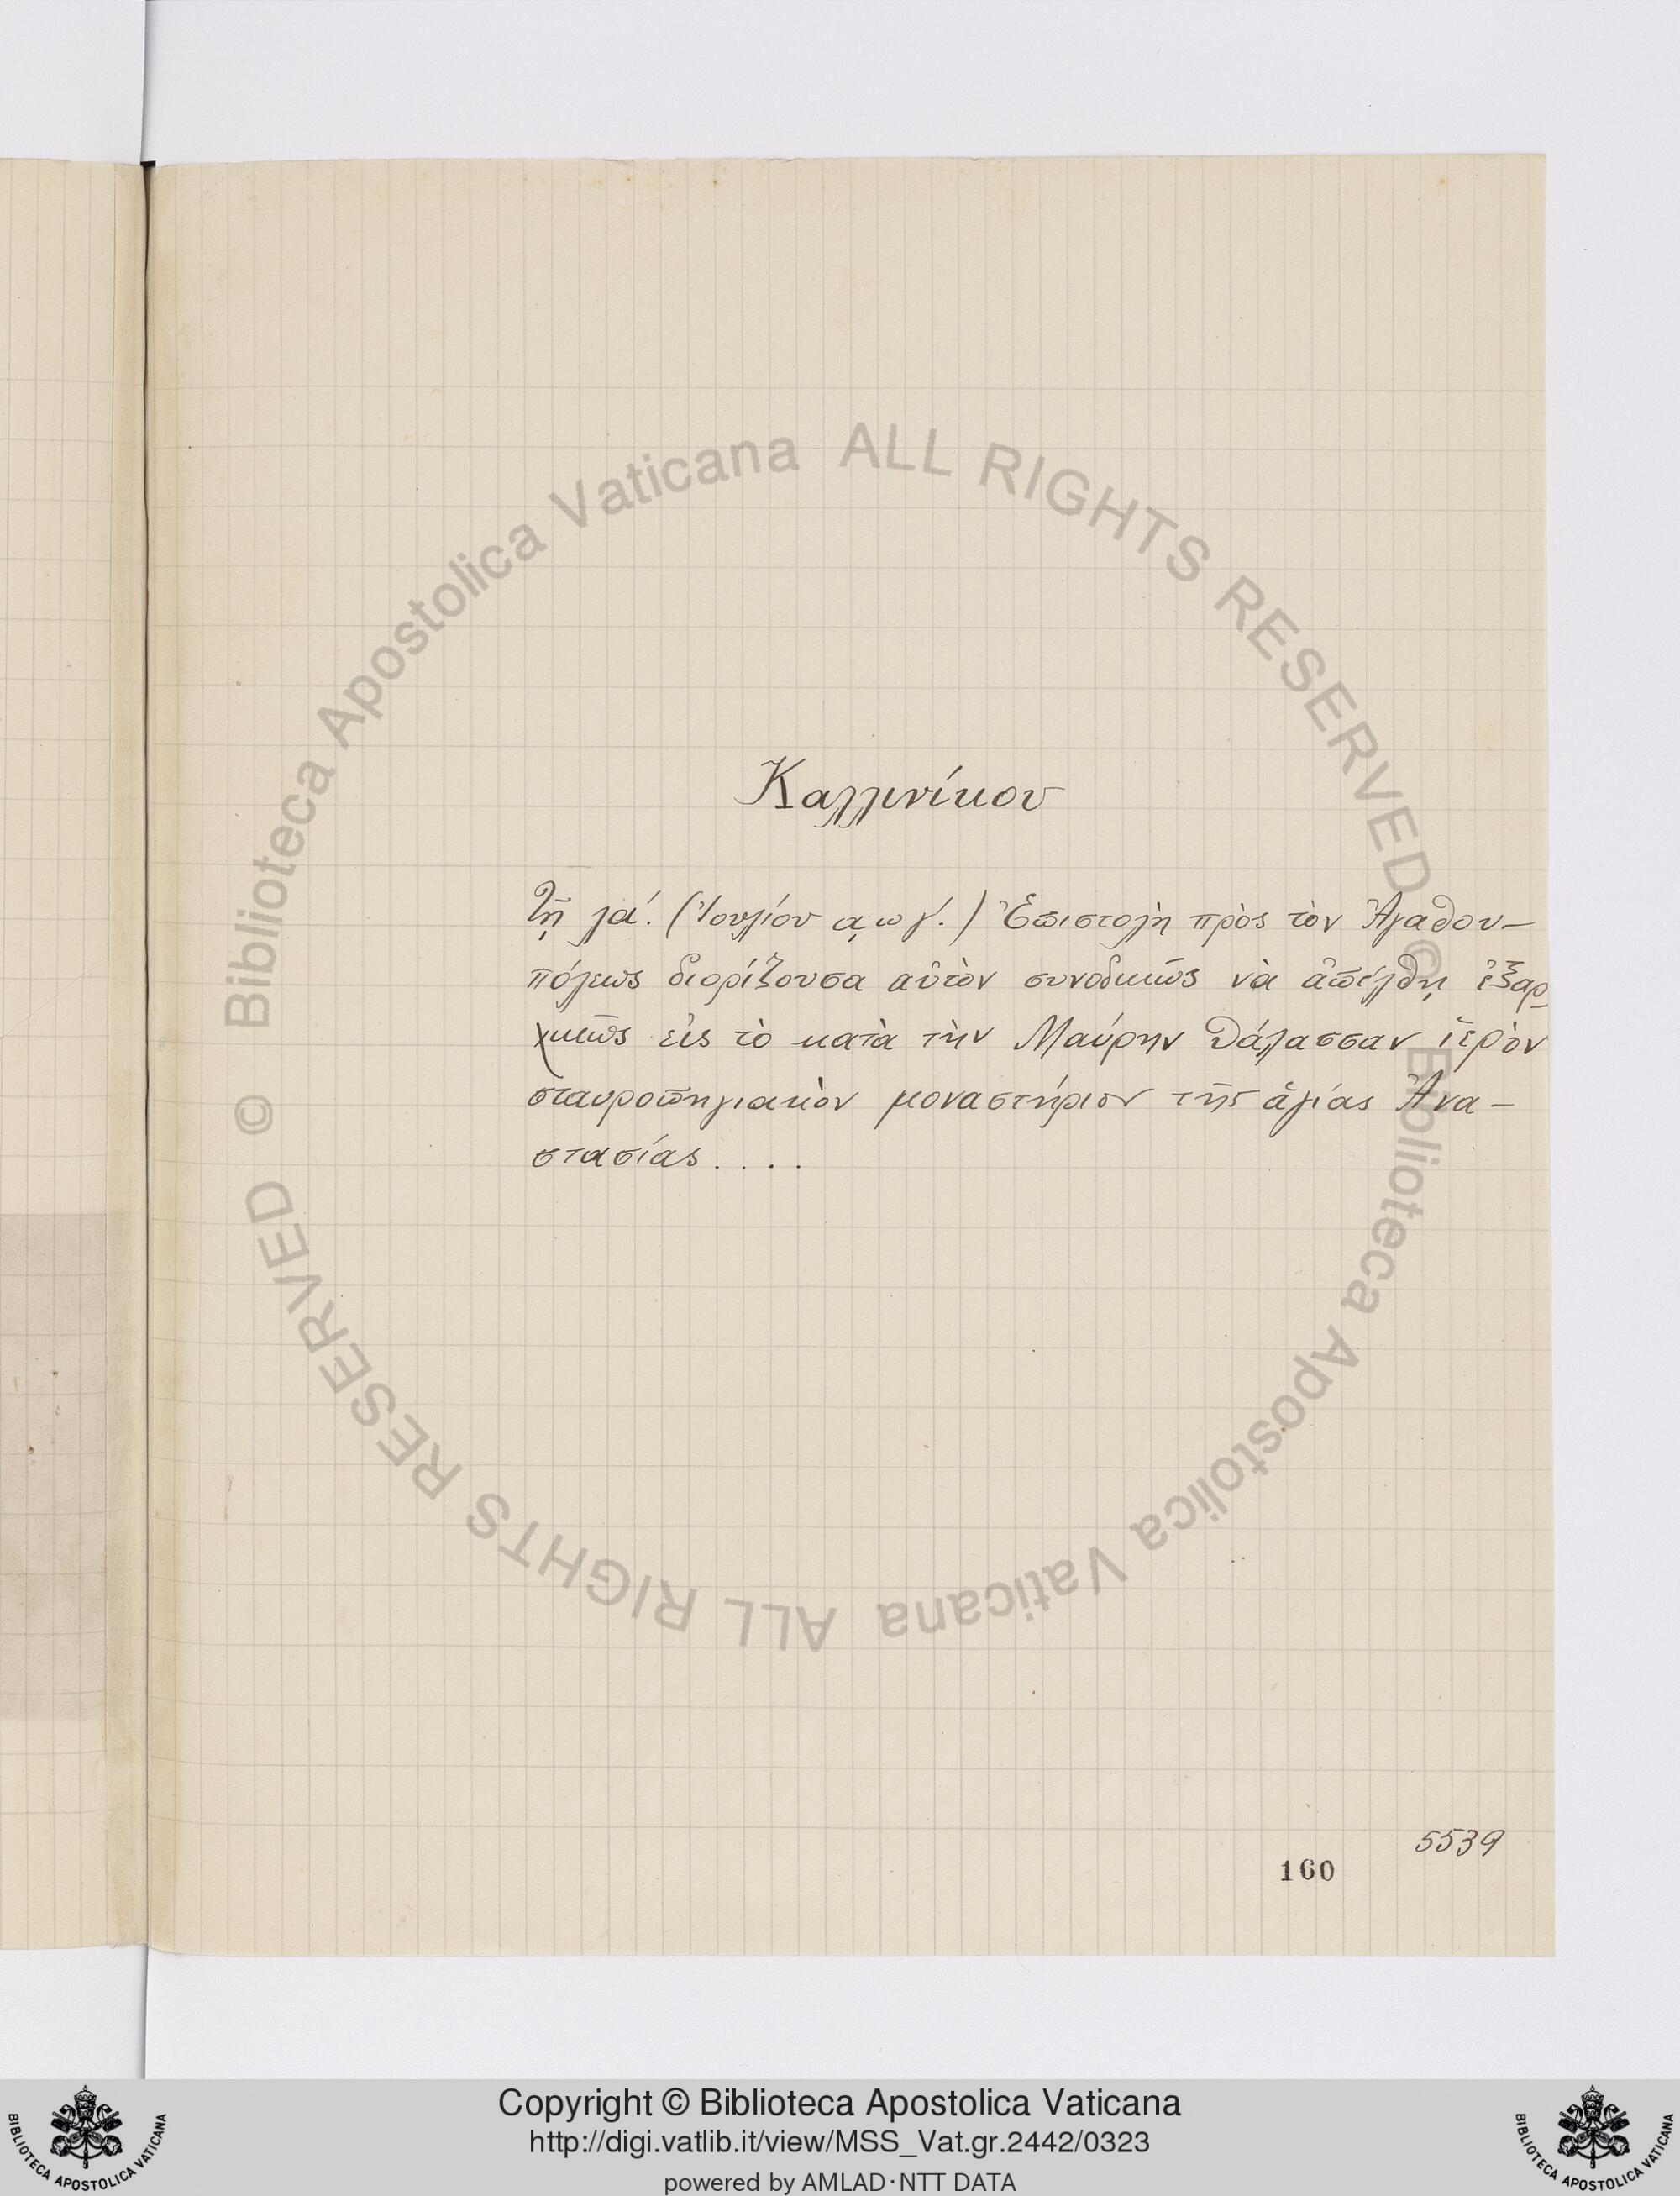 Καλλινίκου
Τῇ λα΄. (Ἰουλίου αωγ΄.) Ἐπιστολὴ πρὸς τὸν Ἀγαθου-
πόλεως διορίζουσα αὐτὸν συνοδικῶς νὰ ἀπέλθῃ ἐξαρ-
χικῶς εἰς τὸ κατὰ τὴν Μαύρην θάλασσαν ἱερὸν
σταυροπηγιακὸν μοναστήριον τῆς ἁγίας Ἀνα-
στασίας....
5539
160
© Biblioteca Apostolica Vaticana ALL RIGHTS RESERVED
© Biblioteca Apostolica Vaticana ALL RIGHTS RESERVED
Copyright © Biblioteca Apostolica Vaticana
http://digi.vatlib.it/view/MSS_Vat.gr.2442/0323
powered by AMLAD·NTT DATA
BIBLIOTECA APOSTOLICA VATICANA
BIBLIOTECA APOSTOLICA VATICANA